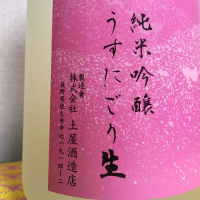 純米吟醸
うすにごり生
製造者
株式会社 土屋酒造店
長野県佐久市中込一九一四ー二